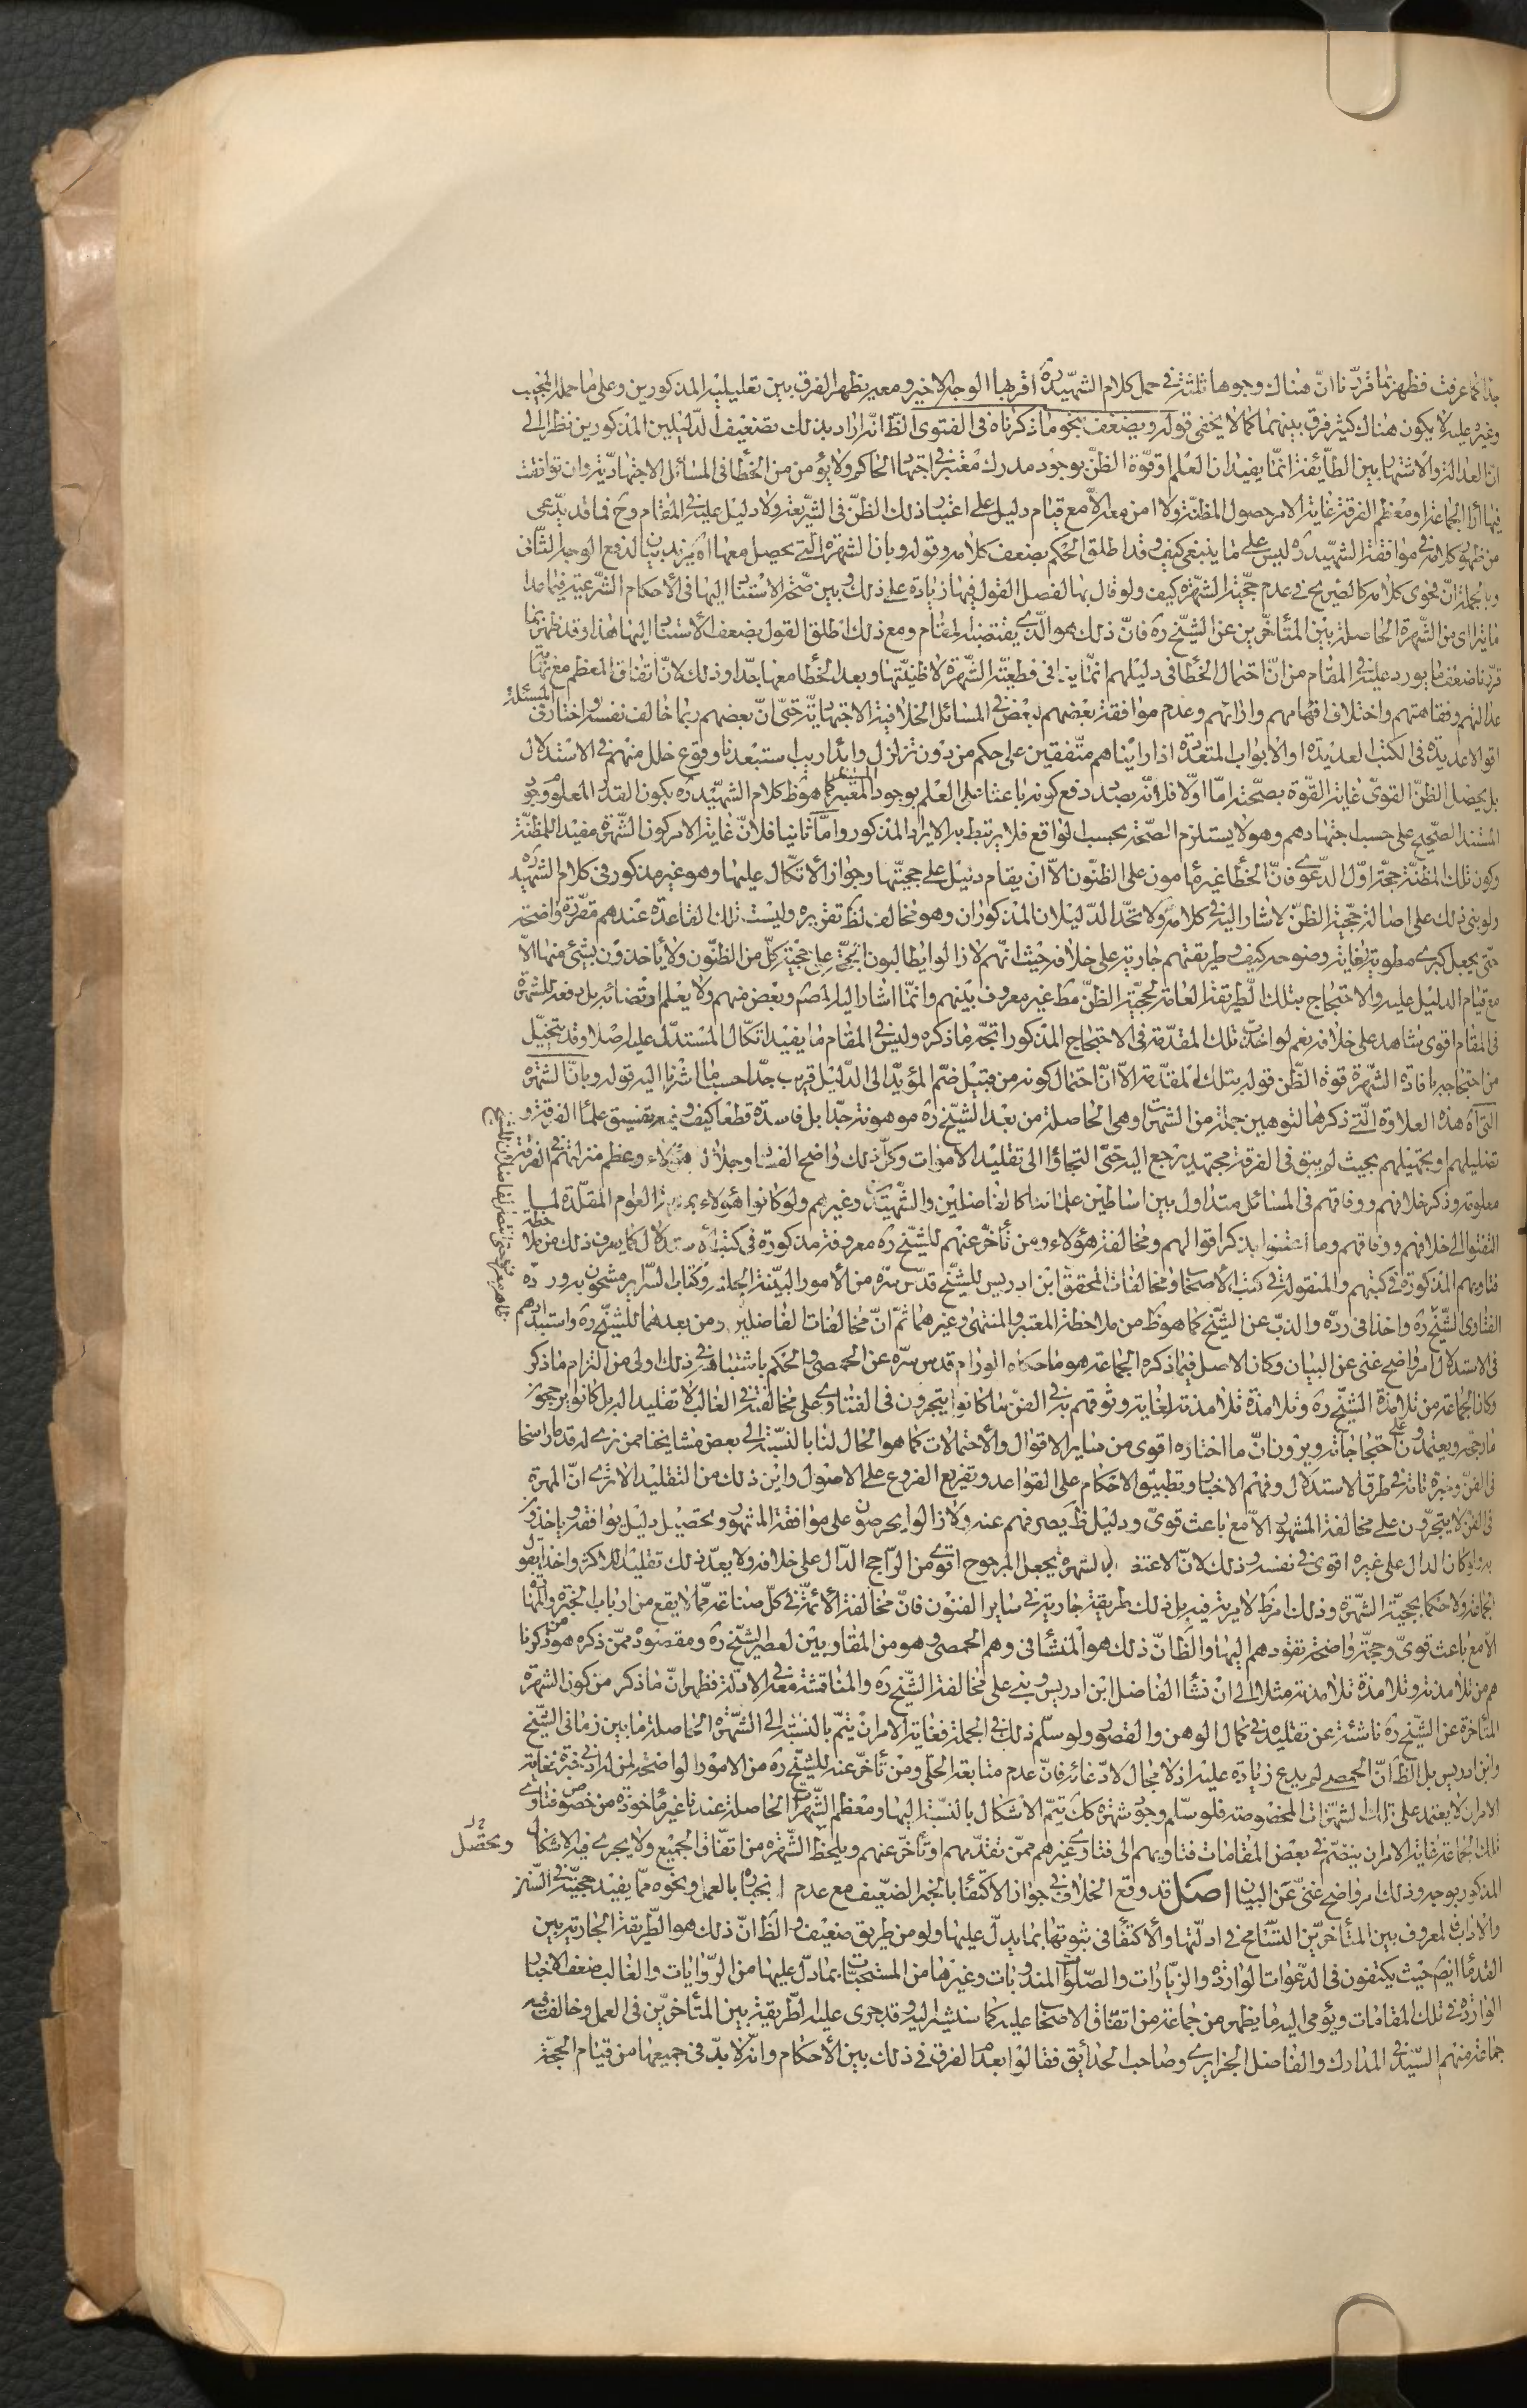 جدا كما عرفت فظهر بما قررنا ان هناك وجوها ثلثة في حمل كلام الشهيد ره اقربها الوجه الاخير ومعه يظهر الفرق بين تعليليه المذكورين وعلى ما حمله المجيب
وغيره عليه لا يكون هناك كثير فرق بينهما كما لا يخفى قوله ويضعف بنحو ما ذكرناه فى الفتوى الظ انه اراد بذلك تضعيف الدليلين المذكورين نظرا الى
ان العدالة والاشتهار بين الطائفة انما يفيدان العلم او قوة الظن بوجود مدرك معتبر في اجتهاد الحاكم ولا يؤمن من الخطا في المسائل الاجتهادية وان توافقت
فيها اراء الجماعة او معظم الفرقة غاية الامر حصول المظنة ولا امن معه الا مع قيام دليل على اعتبار ذلك الظن فى الشريعة ولا دليل عليه في المقام وح فما قد يدعى
من ظهور كلامه في موافقة الشهيد ره ليس على ما ينبغي كيف وقد اطلق الحكم بضعف كلامه وقوله وبان الشهرة التي يحصل معها اه يريد بيان الدفع الوجه الثانى
وبالجملة ان فحوى كلامه كالصريح في عدم حجية الشهرة كيف ولو قال بها لفصل القول فيها زيادة على ذلك وبين صحة الاستناد اليها فى الاحكام الشرعية فيما عدا
ما يتراى من الشهرة الحاصلة بين المتأخرين عن الشيخ ره فان ذلك هو الذي يقتضيه المقام ومع ذلك اطلق القول بضعف الاستناد اليها هذا وقد ظهر بما
قررنا ضعف ما يورد عليه في المقام من ان احتمال الخطا فى دليلهم انما ينافى قطعية الشهرة لا ظنيتها وبعد الخطا معها جدا وذلك لان اتفاق المعظم مع مرتبة
عدالتهم وفقاهتهم واختلاف افهامهم وارائهم وعدم موافقة بعضهم لبعض في المسائل الخلافية الاجتهادية حتى ان بعضهم ربما خالف نفسه واختار في المسئلة
اقوالا عديدة فى الكتب العديدة او الابواب المتعددة اذا رايناهم متفقين على حكم من دون تزلزل وابداء ريب استبعدنا وقوع خلل منهم في الاستدلال
بل يحصل الظن القوى غاية القوة بصحته اما اولا فلانه بصدد دفع كونه باعثا على العلم بوجود المستند المعتبر كما هو ظ كلام الشهيد ره بكون القدر المعلوم وجود
المستند الصحيح على حسب اجتهادهم وهو لا يستلزم الصحة بحسب الواقع فلا يرتبط به الايراد المذكور واما ثانيا فلان غاية الامر كون الشهرة مفيدا للمظنة
وكون تلك المظنة حجة اول الدعوى فان الخطا غير مامون على الظنون الا ان يقام دليل على حجيتها وجواز الاتكال عليها وهو غير مذكور فى كلام الشهيد ره
ولو بنى ذلك على اصالة حجية الظن لاشار اليه في كلامه ولا تحد الدليلان المذكوران وهو مخالف لظ تقريره وليست تلك القاعدة عندهم مقررة واضحة
حتى يجعل كبرى مطوية لغاية وضوحه كيف وطريقتهم جارية على خلافه حيث انهم لا زالوا يطالبون الحجة على حجية كل من الظنون ولا ياخذون بشئ منها الا
مع قيام الدليل عليه والاحتجاج بتلك الطريقة العامة لحجية الظن مط غير معروف بينهم وانما اشار اليه المص وبعض منهم ولا يعلم ارتضائه به بل دفعه للشهرة
فى المقام اقوى شاهد على خلافه نعم لو اخذت تلك المقدمة فى الاحتجاج المذكور اتجه ما ذكره وليس في المقام ما يفيد اتكال المستدل عليه اصلا وقد يتخيل
من احتجاجه بافادة الشهرة قوة الظن قوله بتلك المقدمة الا ان احتمال كونه من قبيل ضم المؤيد الى الدليل قريب جدا حسب ما اشرنا اليه قوله وبان الشهرة
التي اه هذه العلاوة التي ذكرها لتوهين جملة من الشهرات وهى الحاصلة من بعد الشيخ ره موهونة جدا بل فاسدة قطعا كيف وفيه تفسيق علماء الفرقة و
تضليلهم او تجهيلهم بحيث لم يبق فى الفرقة مجتهد يرجع اليه حتى التجاؤا الى تقليد الاموات وكل ذلك واضح الفساد وجلالة هؤلاء وعظم منزلتهم في الفرقة
معلومة وذكر خلافهم ووفاقهم فى المسائل متداول بين اساطين علمائنا كالفاضلين والشهيدين وغيرهم ولو كانوا هؤلاء بمنزلة العوام المقلدة لما
التفتوا الى خلافهم ووفاقهم وما اعتنوا بذكر اقوالهم ومخالفة هؤلاء ومن تأخر عنهم للشيخ ره معروفة مذكورة فى كتب الاستدلال كما يعرف ذلك من ملاحظة
فتاويهم المذكورة في كتبهم والمنقولة في كتب الاصحاب ومخالفات المحقق ابن ادريس للشيخ قدس سره من الامور البينة الجلية وكتاب السراير مشحون به ورده
الفتاوى الشيخ ره واخذا فى رده والذب عن الشيخ كما هو ظ من ملاحظة المعتبر والمنتهى وغيرهما ثم ان مخالفات الفاضلين ومن بعدهما للشيخ ره واستبدادهم
فى الاستدلال امر واضح غنى عن البيان وكان الاصل فيما ذكره الجماعة هو ما حكاه الورام قدس سره عن الحمصى والحكم باشتباهه في ذلك اولى من التزام ما ذكر
وكان الجماعة من تلامذة الشيخ ره وتلامذة تلامذته لغاية وثوقهم به في الفن ما كانوا يتجرون فى الفتاوى على مخالفته في الغالب لا تقليدا له بل كانوا يرجحون
ما رجحه ويعتمدون على احتجاجاته ويرون ان ما اختاره اقوى من ساير الاقوال والاحتمالات كما هو الحال لنا بالنسبة الى بعض مشايخنا ممن نرى له قدما راسخا
فى الفن وخبرة تامة في طرق الاستدلال وفهم الاخبار وتطبيق الاحكام على القواعد وتفريع الفروع على الاصول واين ذلك من التقليد الا ترى ان المهرة
فى الفن لا يتجرون على مخالفة المشهور الا مع باعث قوى ودليل ظ يصرفهم عنه ولا زالوا يحرصون على موافقة المشهور وتحصيل دليل يوافقه وياخذون
به ولو كان الدال على غيره اقوى في نفسه وذلك لان الاعتضاد بالشهرة يجعل المرجوح اقوى من الراجح الدال على خلافه ولا يعد ذلك تقليدا للاكثر واخذا بقول
الجماعة ولا حكما بحجية الشهرة وذلك امر ظ لا مرية فيه بل ذلك طريقة جارية في ساير الفنون فان مخالفة الائمة في كل صناعة مما لا يقع من ارباب الخبرة والمهارة
الا مع باعث قوى وحجة واضحة تقودهم اليها والظ ان ذلك هو المنشا فى وهم الحمصى وهو من المقاربين لعصر الشيخ ره ومقصوده ممن ذكره هو من ذكرنا
هم من تلامذته وتلامذة تلامذته مثلا الى ان نشا الفاضل ابن ادريس وبنى على مخالفة الشيخ ره والمناقشة معه في الادلة فظهر ان ما ذكر من كون الشهرة
المتأخرة عن الشيخ ره ناشئة عن تقليده في كمال الوهن والقصور ولو سلم ذلك في الجملة فغاية الامر ان يتم بالنسبة الى الشهرة الحاصلة ما بين زمانى الشيخ
وابن ادريس بل الظ ان الحمصى لم يدع زيادة عليه اذ لا مجال لادعائه فان عدم متابعة الحلى ومن تأخر عنه للشيخ ره من الامور الواضحة لمن له ادنى خبرة فغاية
الامر ان لا يعتمد على تلك الشهرات المخصوصة فلو سلم وجود شهرة كك يتم الاشكال بالنسبة اليها ومعظم الشهرات الحاصلة عندنا غير ماخوذة من خصوص فتاوى
تلك الجماعة غاية الامر ان ينضم في بعض المقامات فتاويهم الى فتاوى غيرهم ممن تقدمهم او تأخر عنهم ويلحظ الشهرة من اتفاق الجميع ولا يجرى فيه الاشكال
المذكور بوجه وذلك امر واضح غنى عن البيان اصل قد وقع الخلاف في جواز الاكتفاء بالخبر الضعيف مع عدم انجباره بالعمل ونحوه مما يفيد حجيته في السنن
والاداب المعروف بين المتأخرين التسامح فى ادلتها والاكتفاء فى ثبوتها بما يدل عليها ولو من طريق ضعيف والظ ان ذلك هو الطريقة الجارية بين
القدماء ايضا حيث يكتفون فى الدعوات الواردة والزيارات والصلوات المندوبات وغيرها من المستحبات بما دل عليها من الروايات والغالب ضعف الاخبار
الواردة في تلك المقامات ويؤمى اليه ما يظهر من جماعة من اتفاق الاصحاب عليه كما سنشير اليه وقد جرى عليه الطريقة بين المتأخرين فى العمل وخالف فيه
جماعة منهم السيد في المدارك والفاضل الجزايرى وصاحب الحدائق فقالوا بعدم الفرق فى ذلك بين الاحكام وانه لا بد فى جميعها من قيام الحجة